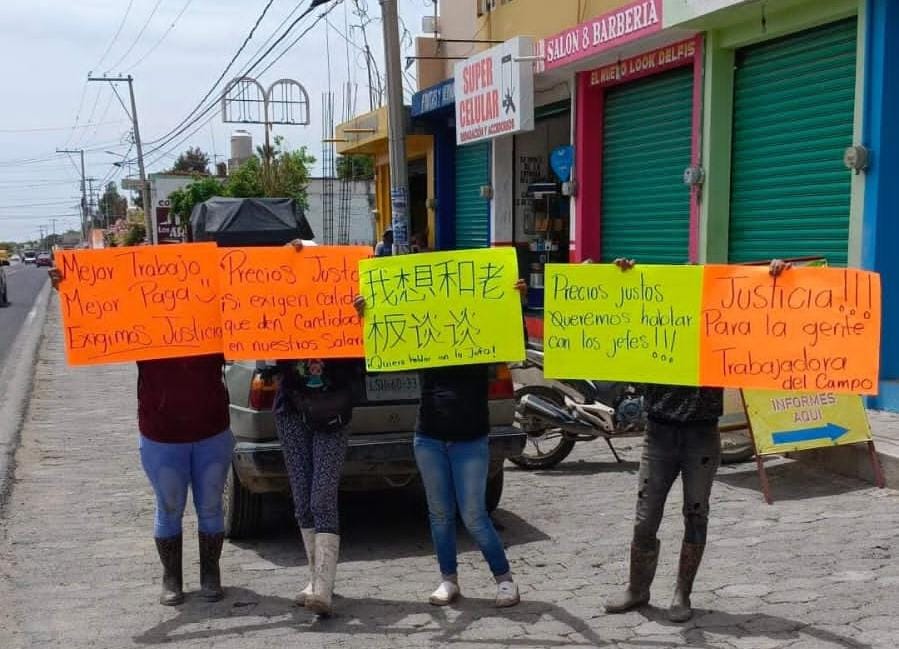 SALON 8 BARBERÌA
EL NUEVO LOOK DELFIS
SUPER
CELULAR
REPARACIÓN Y ACCESORIOS
Mejor Trabajo
Mejor Paga
Exigimos Justicia
Precios Justo
Si exigen calida
que den Cantidad
en nuestros Salar
我想和老
板谈谈
¡Quiero hablar con la Jefa!
Precios justos
Queremos hablar
con los jefes!!!
Justicia!!!
Para la gente
Trabajadora
del Campo
INFORMES
AQUI